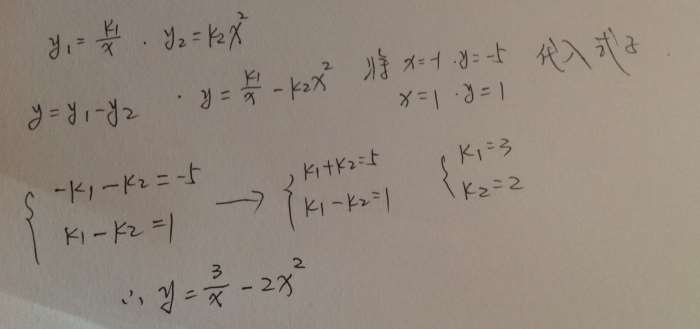 y₁=k₁/x · y₂=k₂x²
y=y₁-y₂ · y=k₁/x-k₂x² 将 x=-1 · y=-5 代入式子.
x=1 · y=1
{-k₁-k₂=-5 → {k₁+k₂=5 {k₁=3
k₁-k₂=1 k₁-k₂=1 k₂=2
∴ y=3/x-2x²